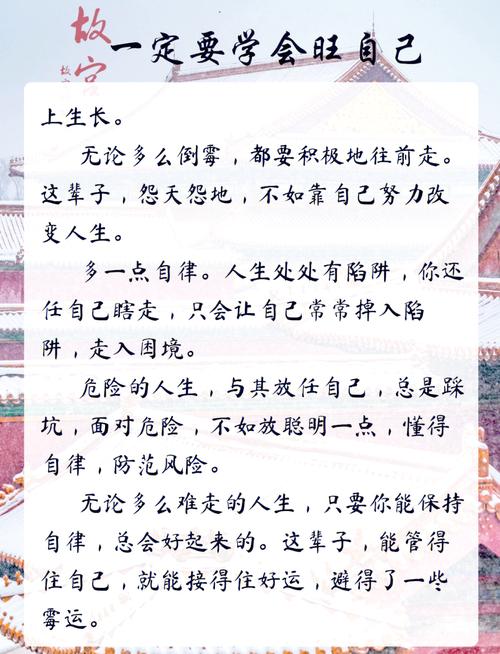 故宫
故宫
一定要学会旺自己
上生长。
无论多么倒霉，都要积极地往前走。
这辈子，怨天怨地，不如靠自己努力改
变人生。
多一点自律。人生处处有陷阱，你还
任自己瞎走，只会让自己常常掉入陷
阱，走入困境。
危险的人生，与其放任自己，总是踩
坑，面对危险，不如放聪明一点，懂得
自律，防范风险。
无论多么难走的人生，只要你能保持
自律，总会好起来的。这辈子，能管得
住自己，就能接得住好运，避得了一些
霉运。